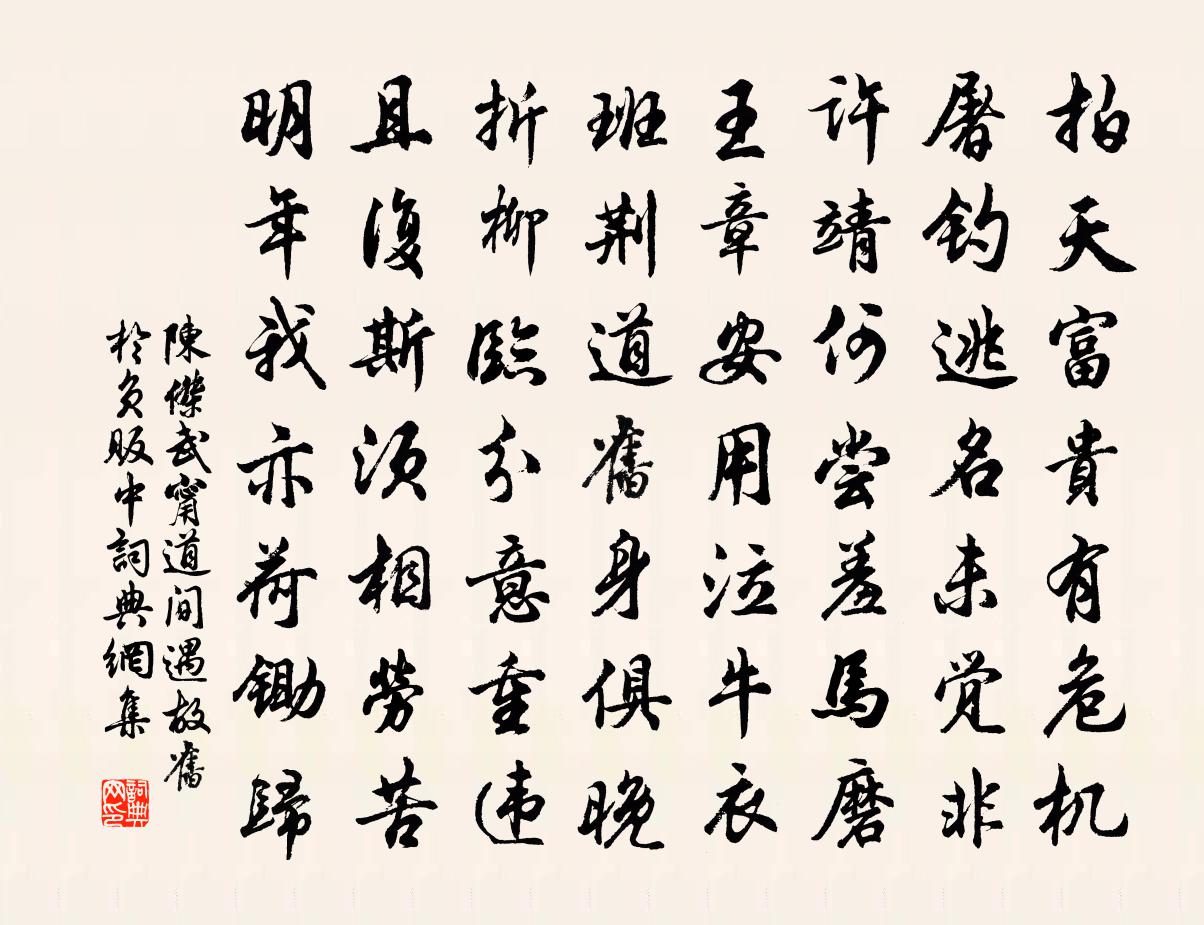 拍天富貴有危机
屠钓逃名未覚非
许靖何尝羞馬磨
王章安用泣牛衣
班荆道舊身俱晚
折柳臨分意重违
且復斯须相勞苦
明年我亦荷鋤歸
陳傑武甯道间遇故舊
於負販中詞典網集
詞典网印